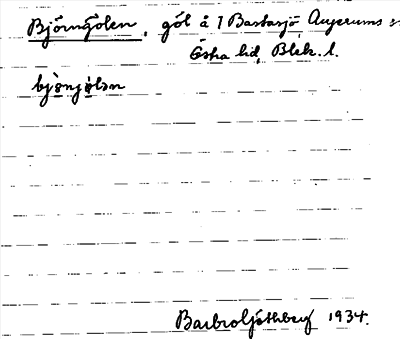 Björngölen, göl å 1 Bastasjö Augerums s
Östra hd, Blek. l.
bjö̀njø̀lən
Barbro Ljothberg 1934.